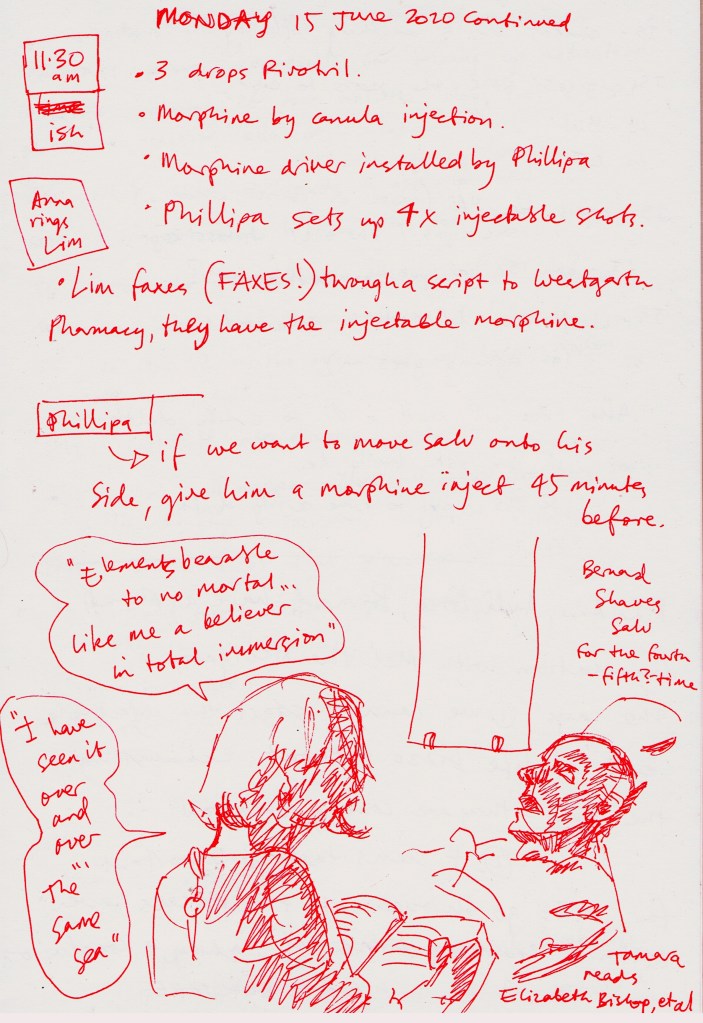 MONDAY 15 June 2020 continued
11.30
am
ish
• 3 drops Rivotril.
• Morphine by canula injection.
• Morphine driver installed by Phillipa
• Phillipa sets up 4x injectable shots.
Anna
rings
Lim
• Lim faxes (FAXES!) through a script to Westgarth
Pharmacy, they have the injectable morphine.
Phillipa
if we want to move Salv onto his
side, give him a morphine inject 45 minutes
before.
"Elements bearable
to no mortal...
like me a believer
in total immersion"
Bernard
Shaves
Salv
for the fourth
-fifth?-time
"I have
seen it
over
and
over
...
the
same
sea"
Tamara
reads
Elizabeth Bishop, et al